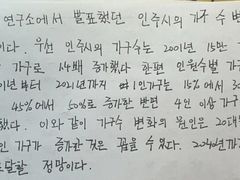 연구소에서 발표했던 인주시의 가구 수 변
이다. 우선 인주시의 가구수는 2001년 15만
가구로 14배 증가했다 한편 인원수별 가구
년부터 2021년까지 1인가구는 15%에서 30
45%에서 50%로 증가한 반면 4인 이상 가구
했다. 이와 같이 가구수 변화의 원인은 20대
인 가구가 증가한 것은 꼽을 수 있다. 2040년까지
도달할 전망이다.